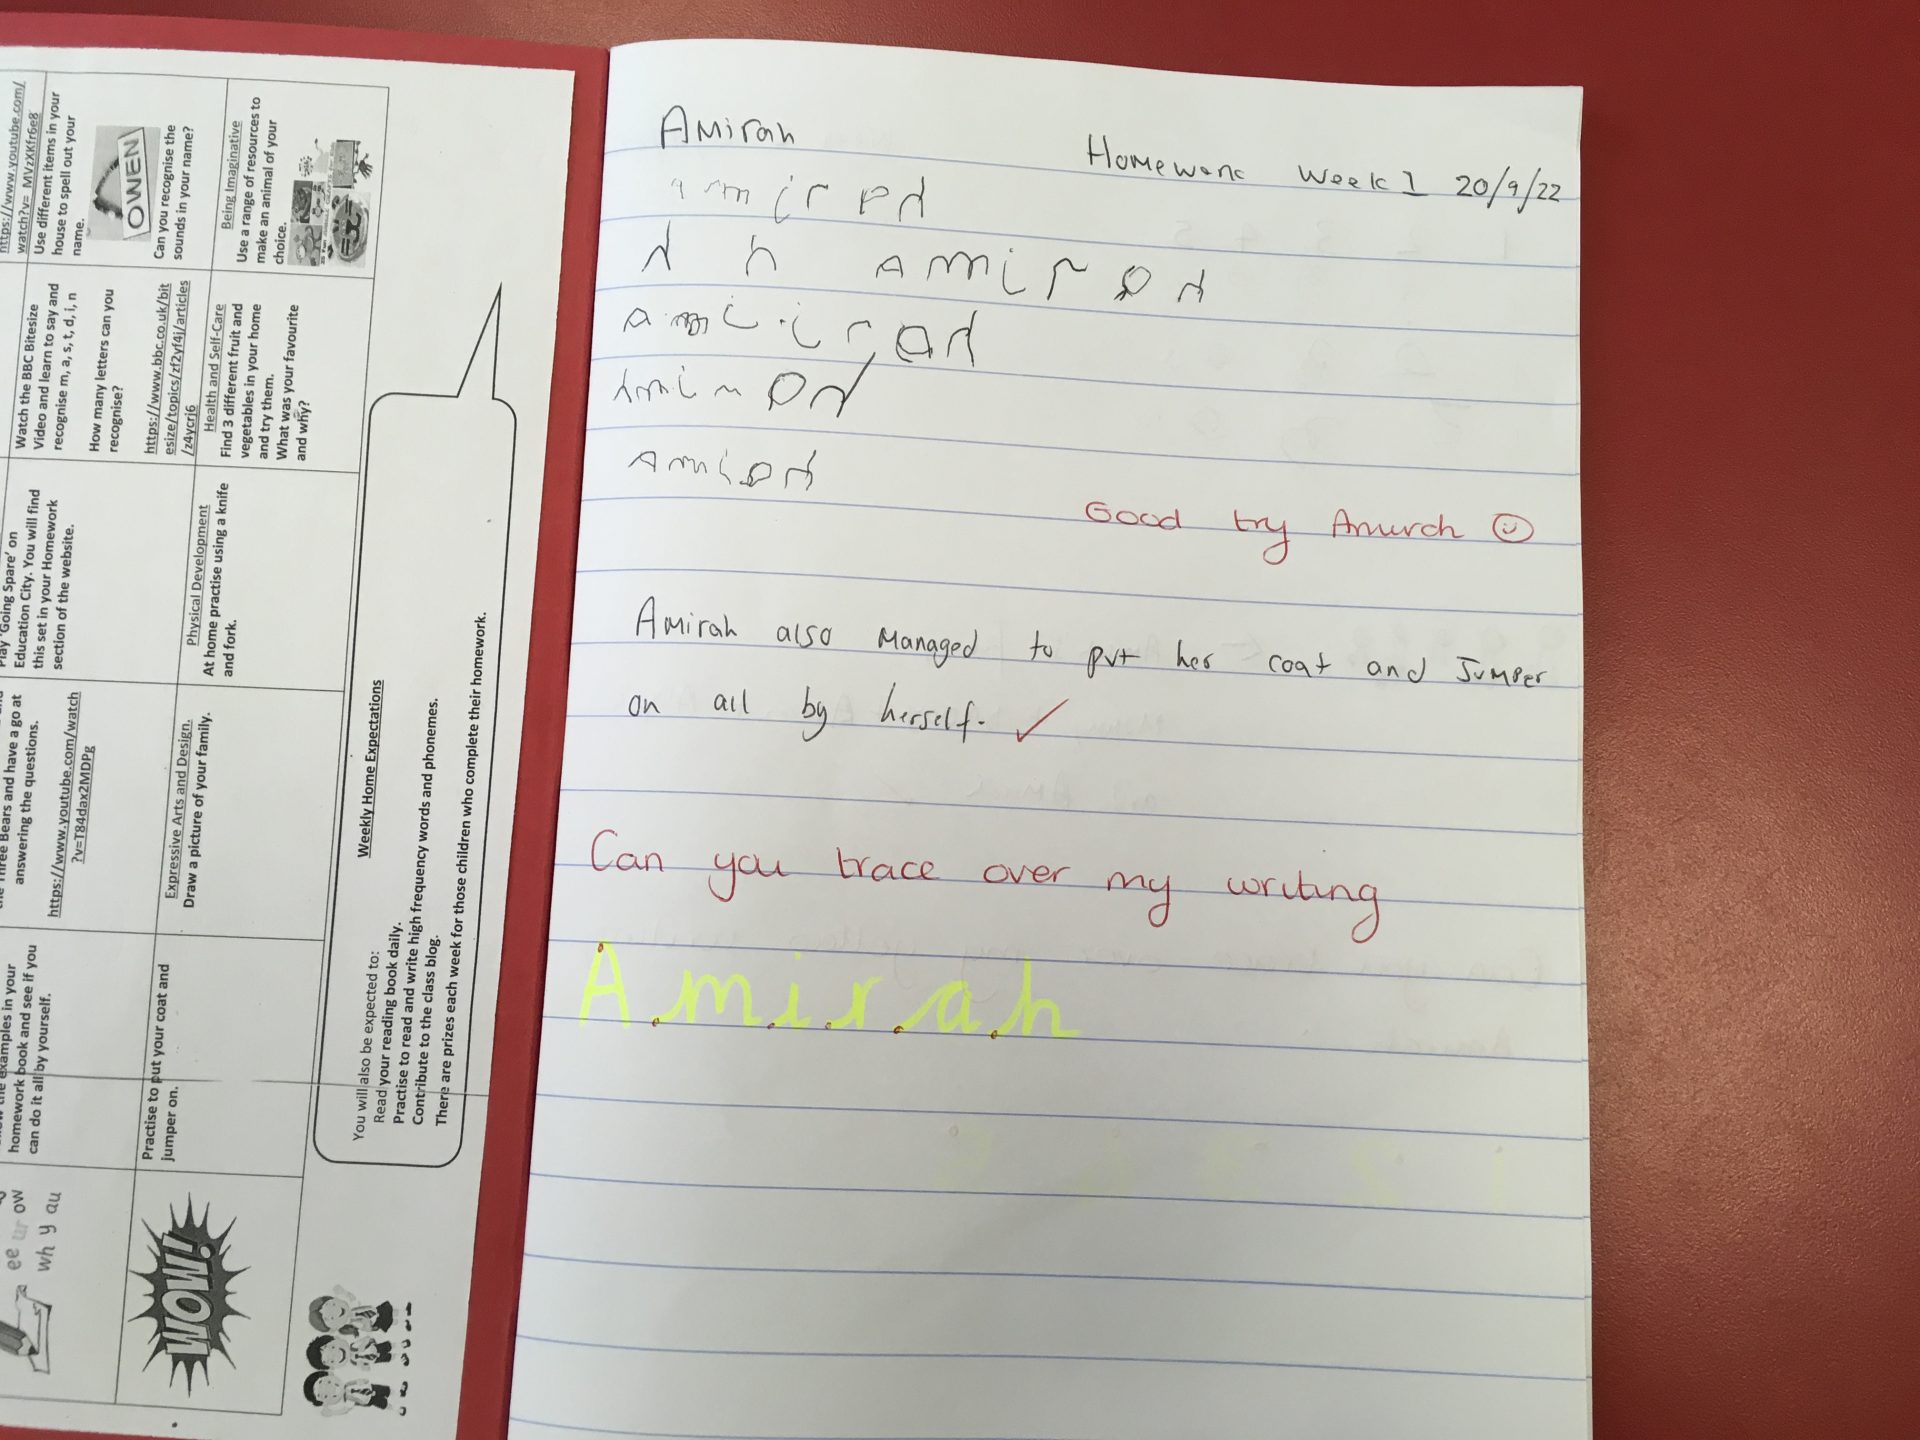 Amirah
Homework Week 1 20/9/22
Good try Amirah
Amirah also managed to put her coat and Jumper
on all by herself.
Can you trace over my writing
Amirah
https://www.youtube.com/
watch?v= MVzXKfr6e8
Use different items in your
house to spell out your
name.
OWEN
Can you recognise the
sounds in your name?
Being Imaginative
Use a range of resources to
make an animal of your
choice.
Watch the BBC Bitesize
Video and learn to say and
recognise m, a, s, t, d, i, n
How many letters can you
recognise?
https://www.bbc.co.uk/bit
esize/topics/zf2yf4j/articles
/z4ycrj6
Health and Self-Care
Find 3 different fruit and
vegetables in your home
and try them.
What was your favourite
and why?
Play 'Going Spare' on
Education City. You will find
this set in your Homework
section of the website.
Physical Development
At home practise using a knife
and fork.
the Three Bears and have a go at
answering the questions.
https://www.youtube.com/watch
?v=T84dax2MDPg
Expressive Arts and Design.
Draw a picture of your family.
the examples in your
homework book and see if you
can do it all by yourself.
Practise to put your coat and
jumper on.
ee ur ow
wh y au
WOW!
Weekly Home Expectations
You will also be expected to:
Read your reading book daily.
Practise to read and write high frequency words and phonemes.
Contribute to the class blog.
There are prizes each week for those children who complete their homework.